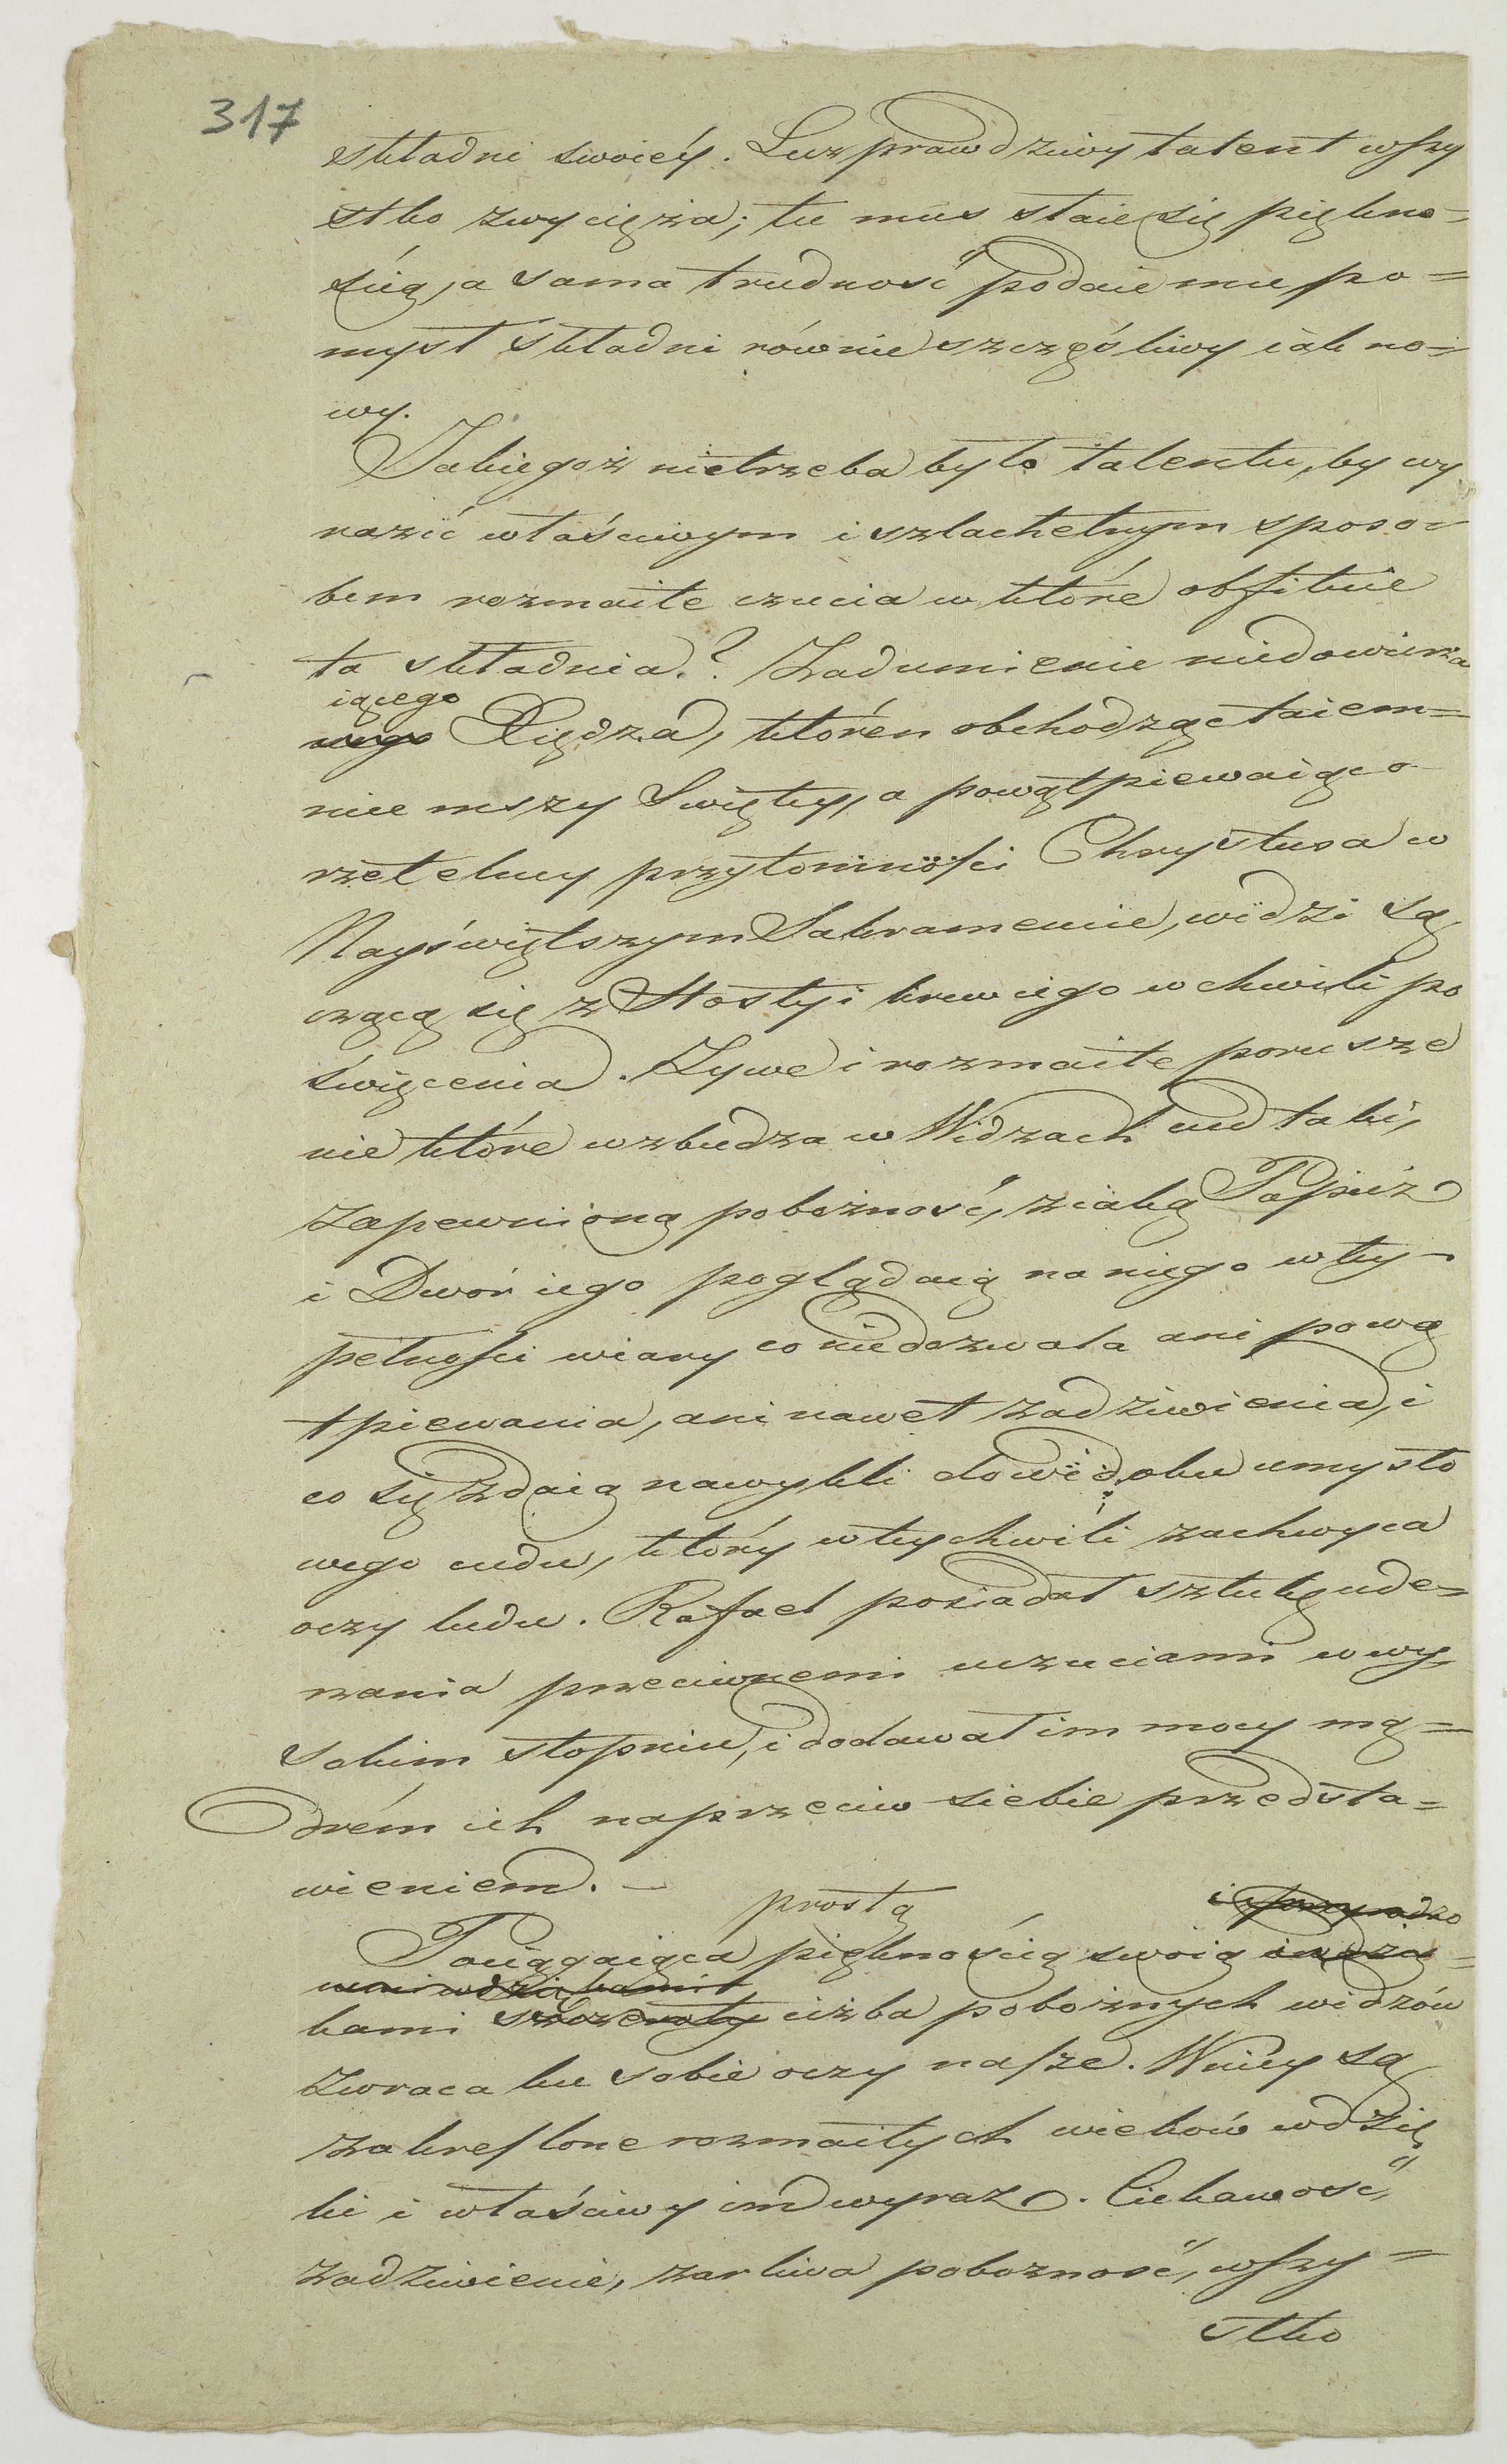 317
składni swoiéy. Lecz prawdziwy talent wszy
stko zwycięża; tu mus staie się piękno-
ścią, a sama trudność podaie mu po=
mysł składni równie szczęśliwy iak no-
wy.
Jakiegoż nietrzeba było talentu, by wy
razić właściwym i szlachetnym sposo-
bem rozmaite czucia w które obfituie
ta składnia? Zadumienie niedowierza
iącego
Xiędza, któren obchodząc taiem=
nice mszy Swiętey, a powątpiewaiąc o
rzetelney przytomności Chrystusa w
Nayświętszym Sakramencie, widzi są
czącą się z Hostyi krew iego w chwili po
święcenia. Zywe i rozmaite porusze
nie które wzbudza w Widzach cud taki,
zapewnioną pobożność, z iaką Papież
i Dwór iego poglądaią na niego w tey
pełności wiary co niedozwala ani pową
tpiewania, ani nawet zadziwienia, i
co się zdaią nawykli do widoku umysło
wego cudu, który w tey chwili zachwyca
oczy ludu. Rafael posiadał sztukę ude-
rzania przeciwnemi uczuciami w wy
sokim stopniu, i dodawał im mocy mą=
drém ich naprzeciw siebie przedsta=
wieniem. —
prostą i przyrodzo
Pociągaiąca pięknością swoią i wdzię=
nemi wdziękami
kami szczeroty ciżba pobożnych widzów
zwraca ku sobie oczy nasze. W niey są
zakreslone rozmaitych wieków wdzię
ki i właściwy im wyraz. Ciekawość,
zadziwienie, żarliwa pobożność, wszy=
stko